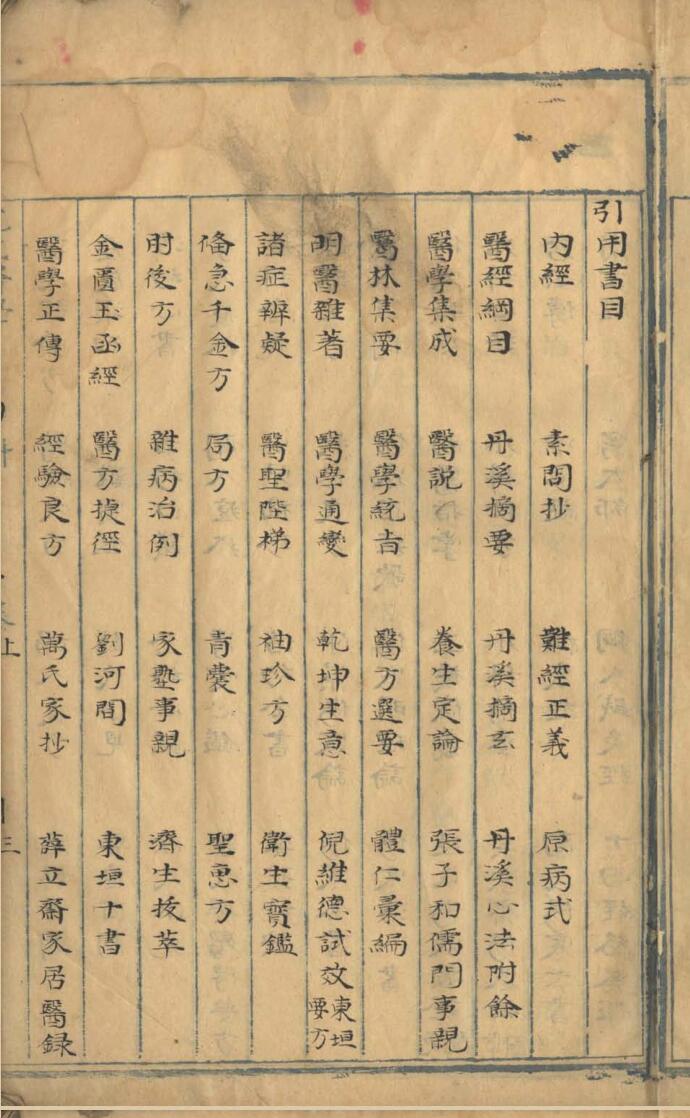 引用書目
內經 素問抄 難經正義 原病式
醫經綱目 丹溪摘要 丹溪摘玄 丹溪心法附餘
醫學集成 醫說 養生定論 張子和儒門事親
醫林集要 醫學統旨 醫方選要 體仁彙編
明醫雜著 醫學通變 乾坤生意 倪維德試效 東垣要方
諸症辨疑 醫聖陛梯 袖珍方 衛生寶鑑
俻急千金方 局方 青囊 聖惠方
肘後方 雜病治例 家塾事親 濟生拔萃
金匱玉函經 醫方捷徑 劉河間 東垣十書
醫學正傳 經驗良方 萬氏家抄 薛立齋家居醫録
上
三